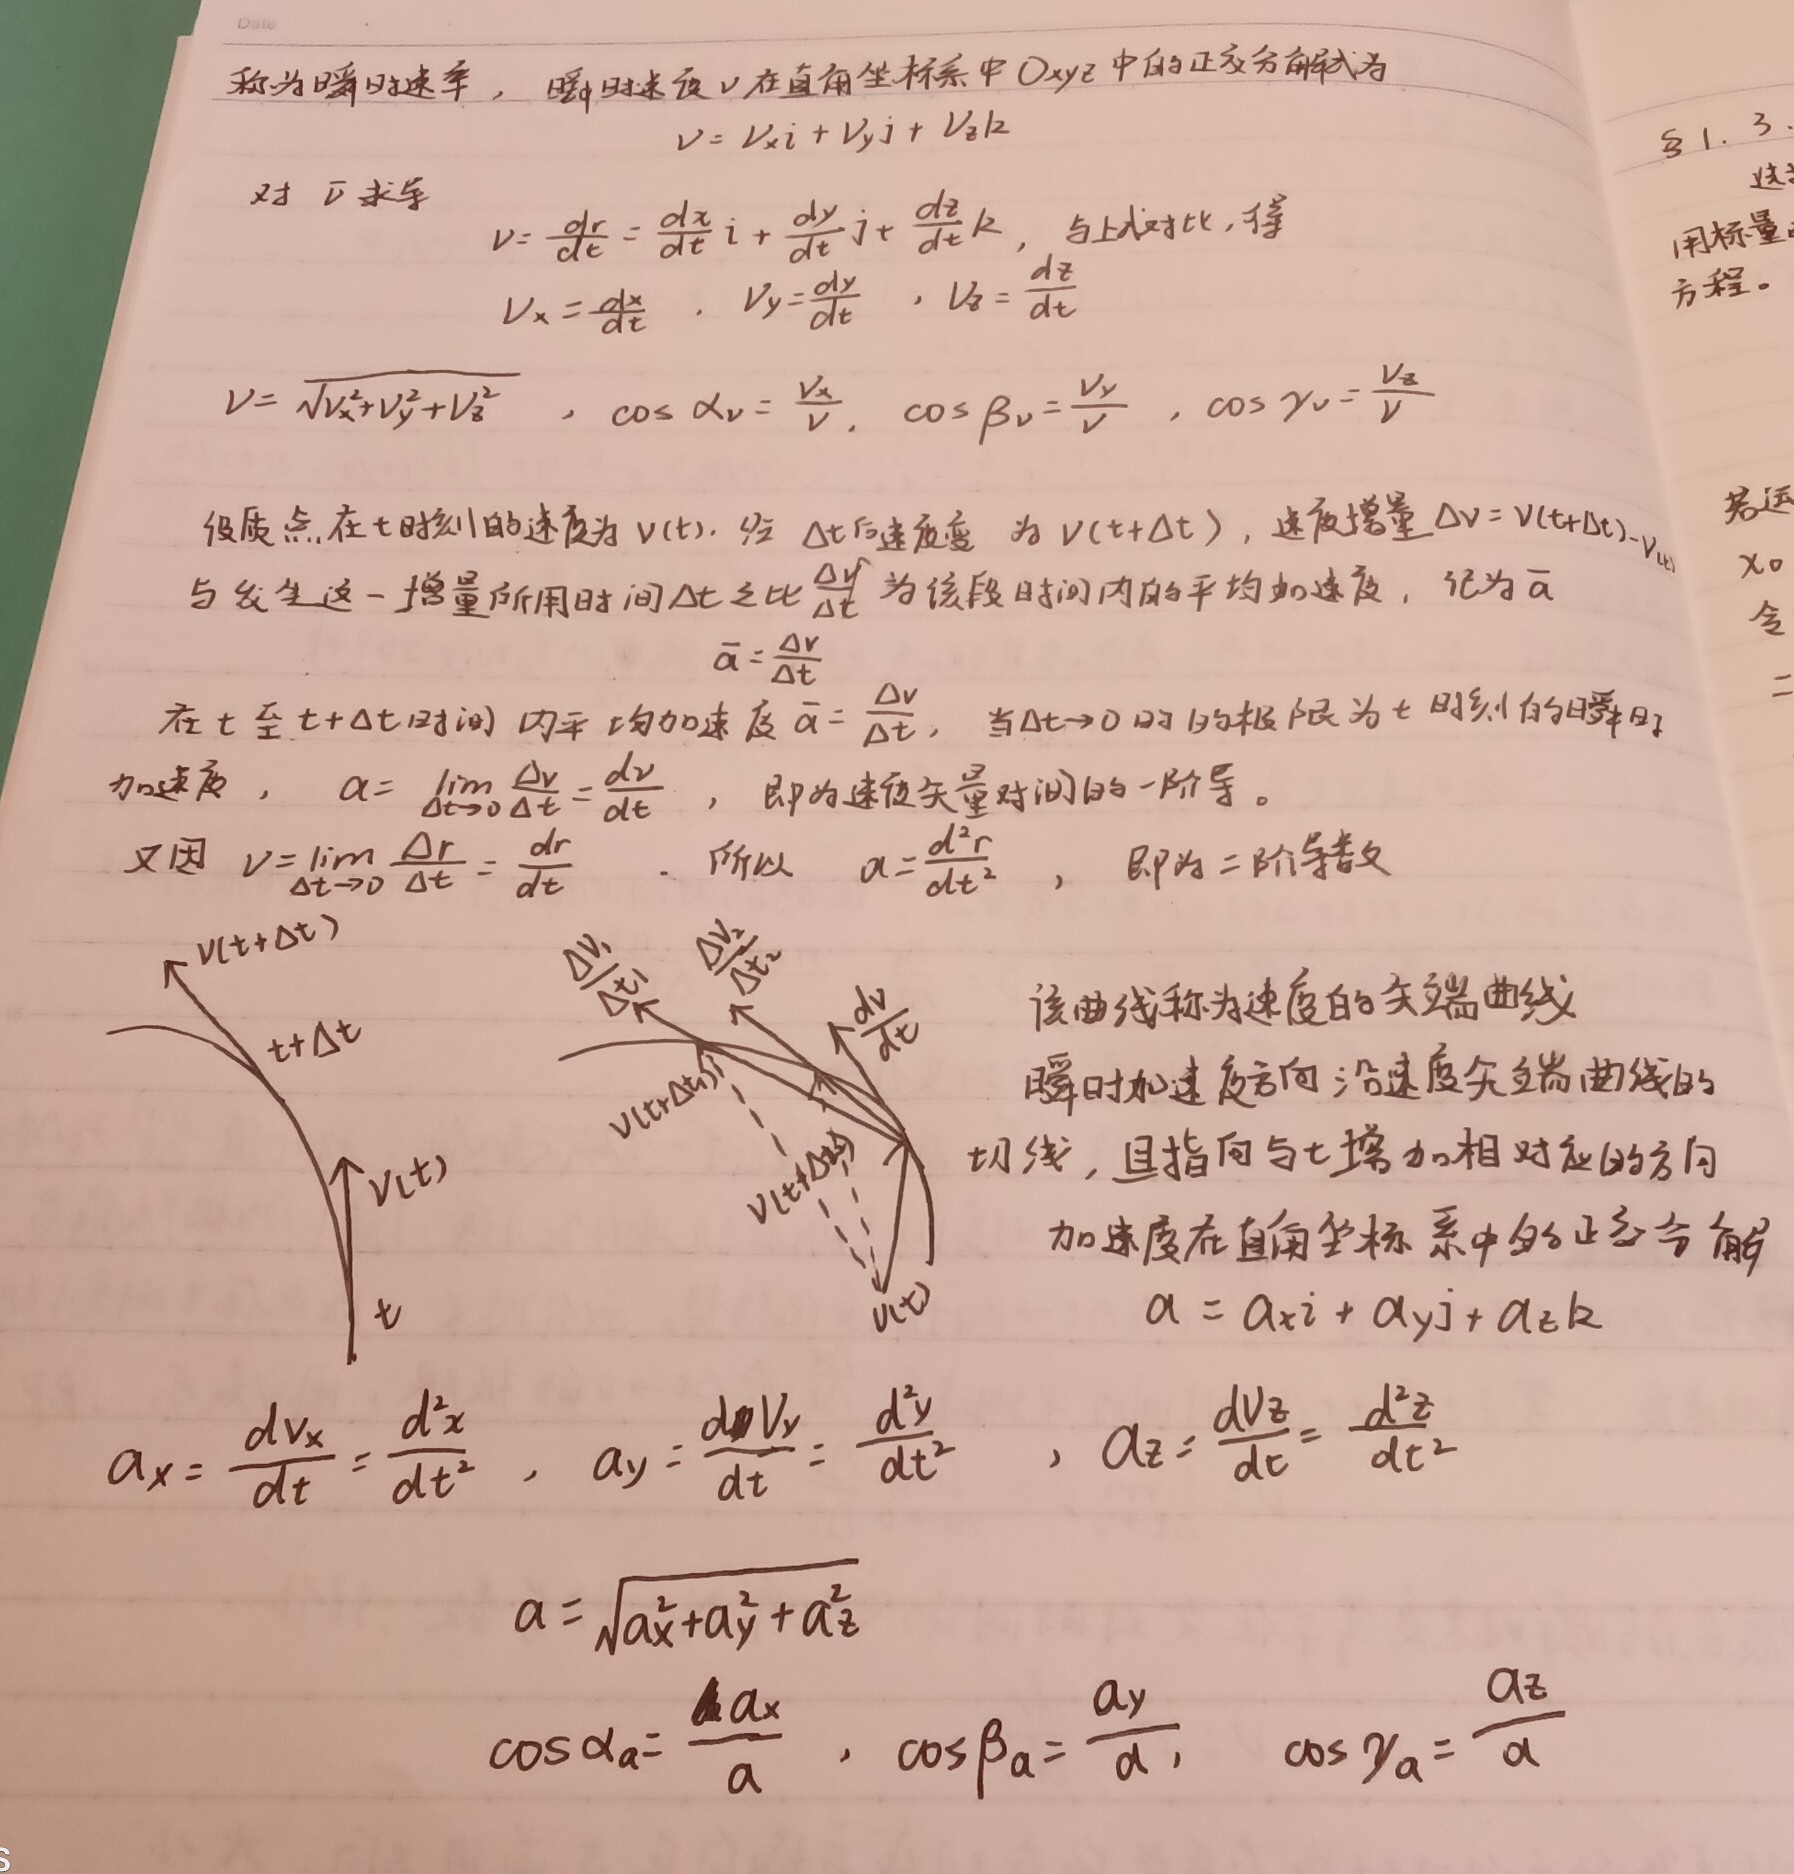 Date
称为瞬时速率，瞬时速度v在直角坐标系中Oxyz中的正交分解式为
v=Vxi+Vyj+Vzk
对 v̄ 求导
v=dr/dt=dx/dt i+dy/dt j+dz/dt k，与上式对比，得
Vx=dx/dt，Vy=dy/dt，Vz=dz/dt
v=√(Vx²+Vy²+Vz²)，cos αv=Vx/v，cos βv=Vy/v，cos γv=Vz/v
设质点在t时刻的速度为v(t)，经Δt后速度变为v(t+Δt)，速度增量Δv=v(t+Δt)-v(t)
与发生这一增量所用时间Δt之比Δv/Δt为该段时间内的平均加速度，记为ā
ā=Δv/Δt
在t至t+Δt时间内平均加速度ā=Δv/Δt，当Δt→0时的极限为t时刻的瞬时
加速度，a=lim Δt→0 Δv/Δt=dv/dt，即为速度矢量对时间的一阶导。
又因 v=lim Δt→0 Δr/Δt=dr/dt，所以 a=d²r/dt²，即为二阶导数
v(t+Δt)
t+Δt
v(t)
t
Δv₁/Δt₁
Δv₂/Δt₂
dv/dt
v(t+Δt₁)
v(t+Δt₂)
v(t)
该曲线称为速度的矢端曲线
瞬时加速度方向沿速度矢端曲线的
切线，且指向与t增加相对应的方向
加速度在直角坐标系中的正交分解
a=axi+ayj+azk
ax=dvx/dt=d²x/dt²，ay=dVy/dt=d²y/dt²，az=dVz/dt=d²z/dt²
a=√(ax²+ay²+az²)
cos αa=ax/a，cos βa=ay/a，cos γa=az/a
§1.3.
用标量
方程。
若运
x0
令
=
S